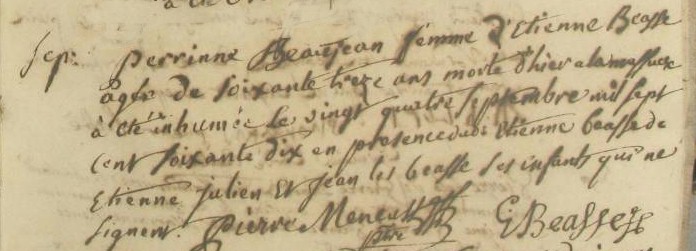 Sep: Perrinne Beaujean femme d'Etienne Beasse
agée de soixante treze ans morte d'hier a la
à eté inhumée le vingt quatre septembre mil sept
cent soixante dix en presence dudi Etienne beasse de
Etienne julien Et jean les beasse ses enfants qui ne
signent. Pierre
ptre G Beasse